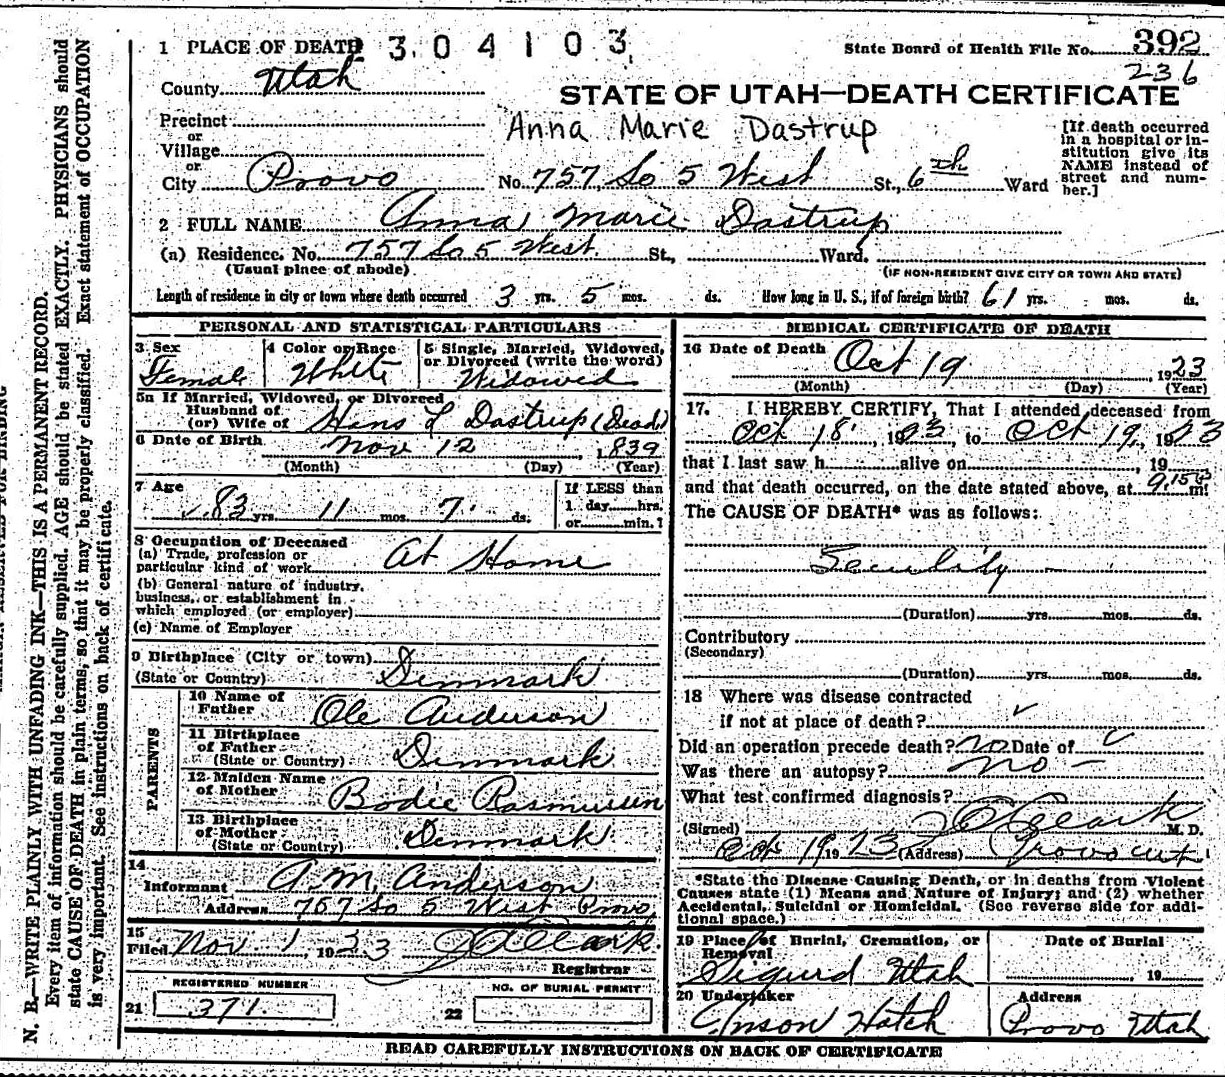 1 PLACE OF DEATH 2304103
State Board of Health File No. 392
236
County Utah
STATE OF UTAH—DEATH CERTIFICATE
Precinct
or
Village
or
City Provo
Anna Marie Dastrup
[If death occurred in a hospital or institution give its NAME instead of street and number.]
No. 757 So 5 West St., 6th Ward
2 FULL NAME Anna Marie Dastrup
(a) Residence. No. 757 So 5 West St., Ward.
(Usual place of abode) (IF NON-RESIDENT GIVE CITY OR TOWN AND STATE)
Length of residence in city or town where death occurred 3 yrs. 5 mos. ds. How long in U. S., if of foreign birth? 61 yrs. mos. ds.
PERSONAL AND STATISTICAL PARTICULARS
3 Sex Female
4 Color or Race White
5 Single, Married, Widowed, or Divorced (write the word) Widowed
5a If Married, Widowed, or Divorced
Husband of
(or) Wife of Hans L Dastrup (Dead)
6 Date of Birth Nov 12, 1839
(Month) (Day) (Year)
7 Age 83 yrs. 11 mos. 7 ds.
If LESS than
1 day hrs.
or min.?
8 Occupation of Deceased
(a) Trade, profession or
particular kind of work At Home
(b) General nature of industry,
business, or establishment in
which employed (or employer)
(c) Name of Employer
9 Birthplace (City or town)
(State or Country) Denmark
PARENTS
10 Name of
Father Ole Anderson
11 Birthplace
of Father
(State or Country) Denmark
12 Maiden Name
of Mother Bodie Rasmussen
13 Birthplace
of Mother
(State or Country) Denmark
14
Informant A. M. Anderson
Address 757 So 5 West Provo
15
Filed Nov. 1 1923
Registrar
REGISTERED NUMBER
21 371
NO. OF BURIAL PERMIT
22
MEDICAL CERTIFICATE OF DEATH
16 Date of Death Oct 19, 1923
(Month) (Day) (Year)
17. I HEREBY CERTIFY, That I attended deceased from
Oct 18, 1923, to Oct 19, 1923
that I last saw h alive on , 19
and that death occurred, on the date stated above, at 9.15 m.
The CAUSE OF DEATH* was as follows:
Senility
(Duration) yrs. mos. ds.
Contributory
(Secondary)
(Duration) yrs. mos. ds.
18 Where was disease contracted
if not at place of death?
Did an operation precede death? no Date of
Was there an autopsy? no
What test confirmed diagnosis?
(Signed) Clark M. D.
Oct 19 1923 (Address) Provo Ut
*State the Disease Causing Death, or in deaths from Violent
Causes state (1) Means and Nature of Injury; and (2) whether
Accidental, Suicidal or Homicidal. (See reverse side for addi-
tional space.)
19 Place of Burial, Cremation, or
Removal
Sigurd Utah
Date of Burial
19
20 Undertaker
Anson Hatch
Address
Provo Utah
READ CAREFULLY INSTRUCTIONS ON BACK OF CERTIFICATE
N. B.—WRITE PLAINLY WITH UNFADING INK—THIS IS A PERMANENT RECORD.
Every item of information should be carefully supplied. AGE should be stated EXACTLY. PHYSICIANS should
state CAUSE OF DEATH in plain terms, so that it may be properly classified. Exact statement of OCCUPATION
is very important. See instructions on back of certificate.